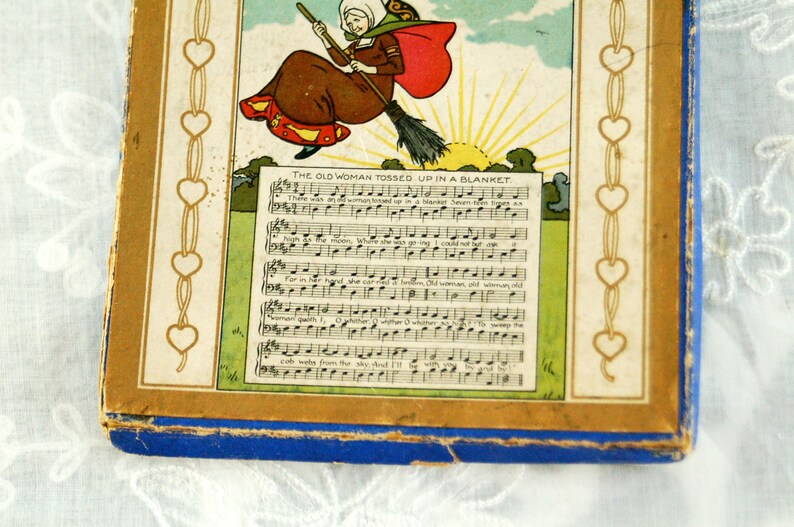 THE OLD WOMAN TOSSED UP IN A BLANKET.
There was an old woman tossed up in a blanket Seven-teen times as
high as the moon; Where she was go-ing I could not but ask it
For in her hand she car-ried a broom, Old woman, old woman, old
woman quoth I, O whither, O whither O whither so high? "To sweep the
cob webs from the sky; And I'll be with you by and by!"